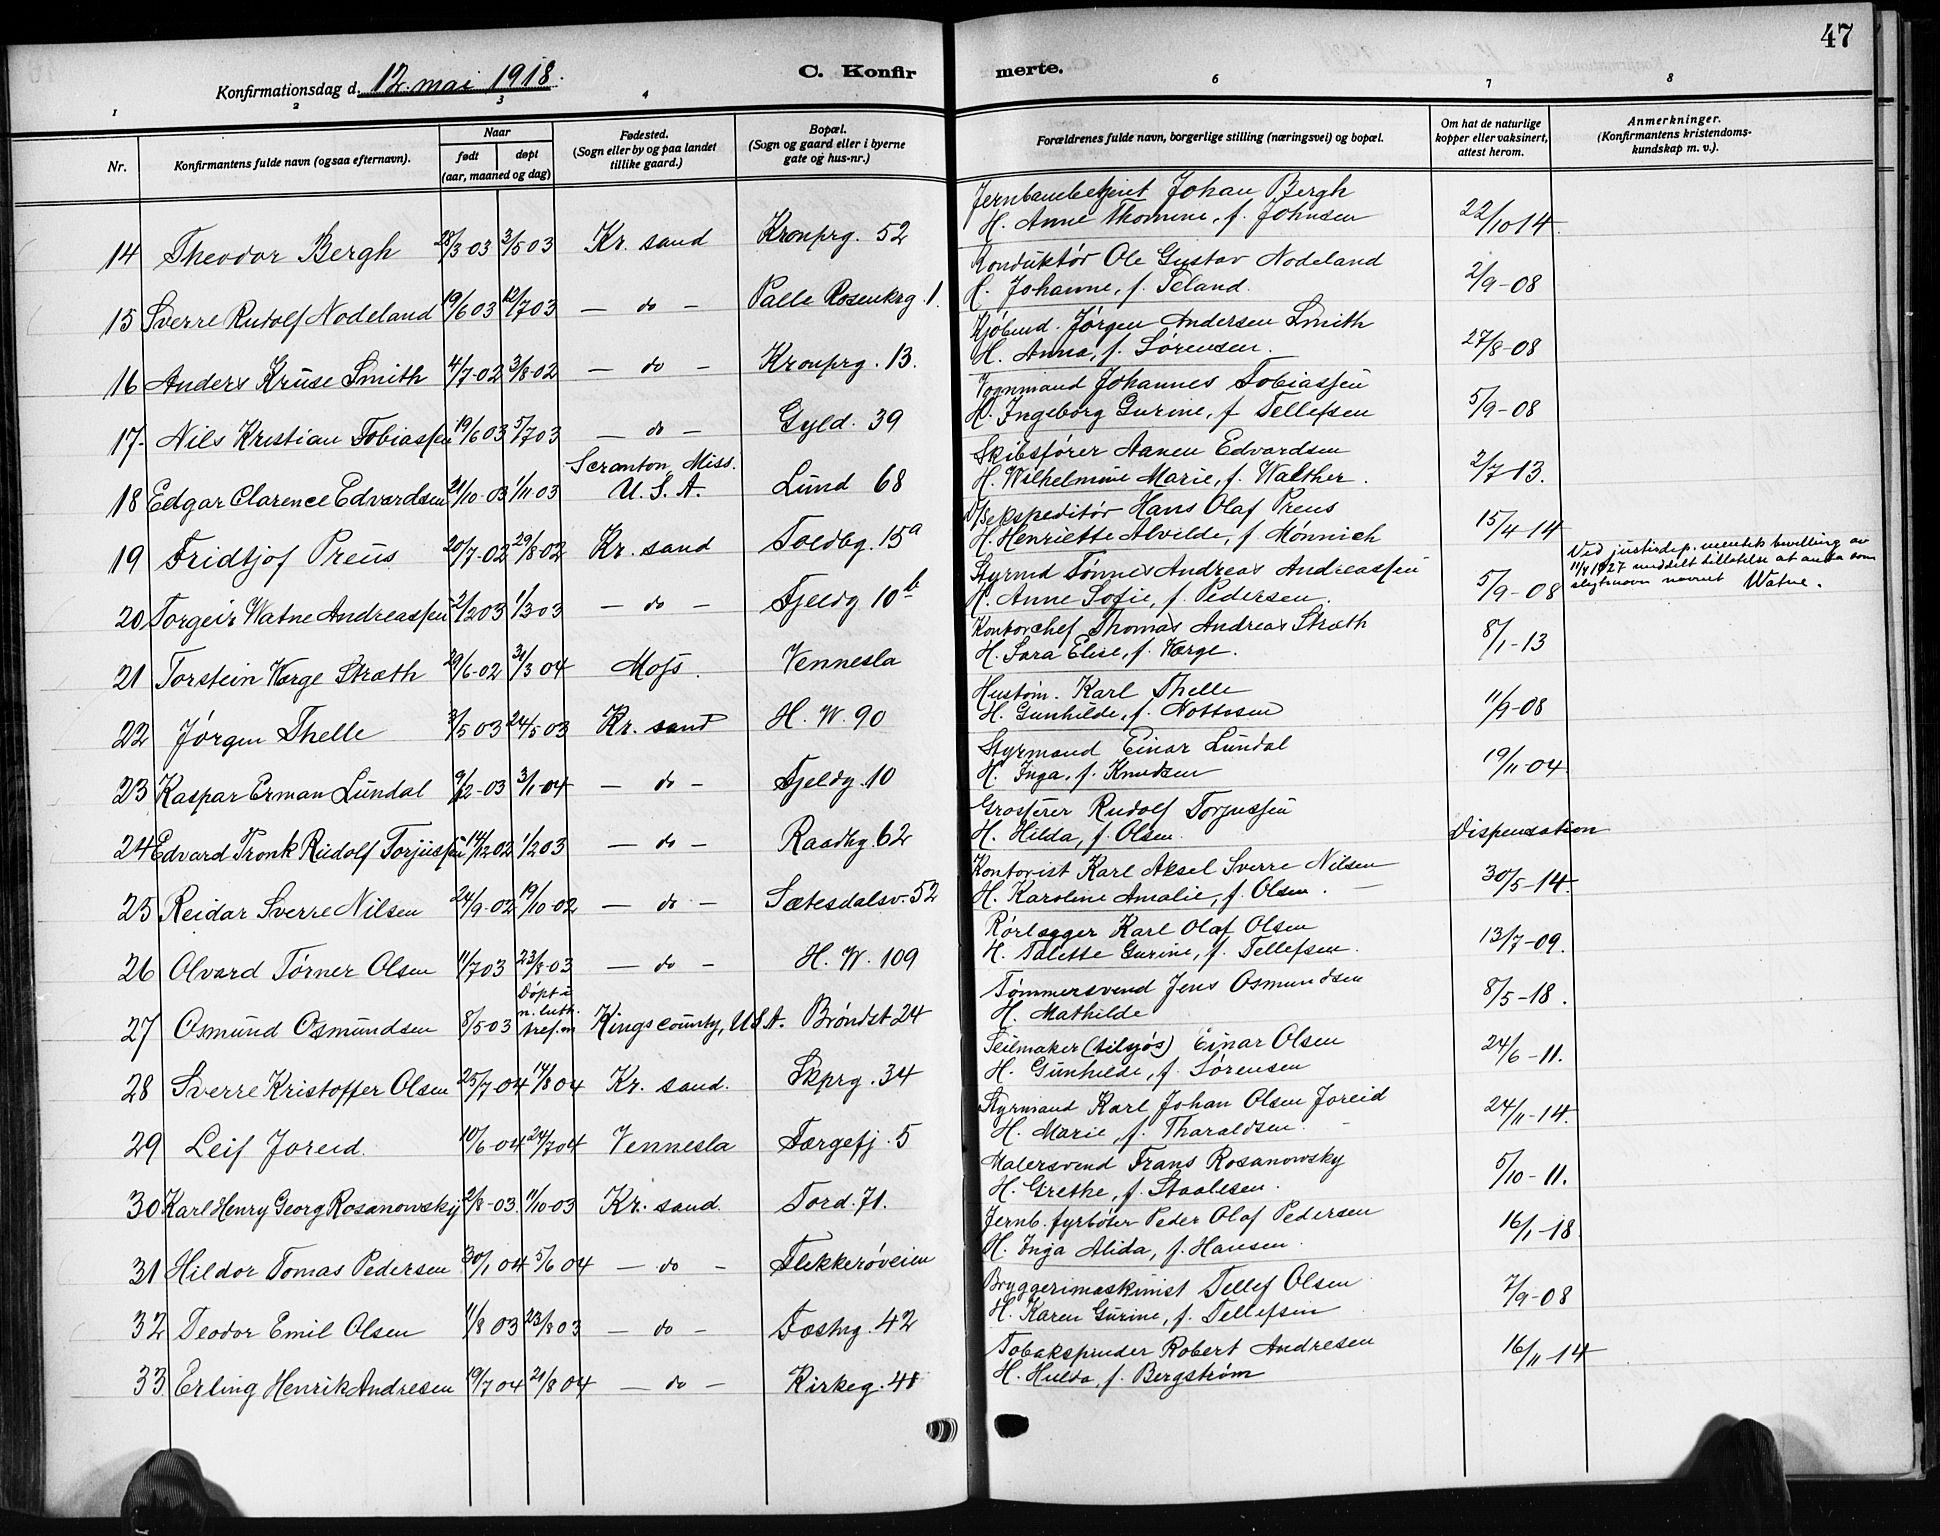 47
Konfirmationsdag d. 12. mai 1918.
C. Konfirmerte.
1 2 3 4 6 7 8
Nr.
Konfirmantens fulde navn (ogsaa efternavn).
Naar
født døpt
(aar, maaned og dag)
Fødested.
(Sogn eller by og paa landet
tillike gaard.)
Bopæl.
(Sogn og gaard eller i byerne
gate og hus-nr.)
Forældrenes fulde navn, borgerlige stilling (næringsvei) og bopæl.
Om hat de naturlige
kopper eller vaksinert,
attest herom.
Anmerkninger.
(Konfirmantens kristendoms-
kundskap m. v.).
Jernbanebetjent Johan Bergh
14 Theodor Bergh 28/3 03 3/5 03 Kr. sand Kronprg. 52 H. Anne Thomine, f. Johnsen 22/10 14
Konduktør Ole Gustav Nodeland
15 Sverre Rudolf Nodeland 19/6 03 12/7 03 — do — Palle Rosenkrg. 1. H. Johanne, f. Teland. 2/9-08
Kjøbmd. Jørgen Andersen Smith
16 Anders Kruse Smith 4/7-02 3/8-02 — do — Kronprg. 13. H. Anna, f. Sørensen. 27/8-08
Vognmand Johannes Tobiassen
17. Nils Kristian Tobiassen 19/6 03 5/7 03 — do — Gyld. 39 H. Ingeborg Gurine, f. Tellefsen 5/9-08
Scranton, Miss.
Skibsfører Aanen Edvardsen
18 Edgar Clarence Edvardsen 21/10-03 1/11-03 U. S. A. Lund 68 H. Wilhelmine Marie, f. Walther. 2/7-13.
D/Sekspeditør Hans Olaf Preus
19 Fridtjof Preus 20/7-02 29/8-02 Kr. sand Toldbg. 15a H. Henriette Alvilde, f. Mønnich 15/4-14
Styrmd Tønnes Andreas Andreassen
20 Torgeir Watne Andreassen 2/2 03 1/3 03 — do — Fjeldg 10b H. Anne Sofie, f. Pedersen. 5/9-08
Ved justisdep. meddelt bevilling av
11/4 1927 meddelt tillatelse at anta som
slegtsnavn navnet Watne.
Kontorchef Thomas Andreas Stræth
21 Torstein Værge Stræth 29/6-02 31/3 04 Moss. Vennesla H. Sara Elise, f. Værge. 8/1-13
Hustøm. Karl Thelle
22 Jørgen Thelle 3/5 03 24/5-03 Kr. sand H. W. 90 H. Gunhilde, f. Nottosen 11/9-08
Styrmand Einar Lundal
23 Kaspar Erman Lundal 9/12-03 3/1-04 — do — Fjeldg. 10 H. Inga, f. Knudsen 19/11-04
Grosserer Rudolf Torjussen
24 Edvard Tronk Rudolf Torjussen 14/12 02 1/2 03 — do — Raadhg. 62 H. Hilda, f. Olsen. Dispensation
Kontorist Karl Aksel Sverre Nilsen
25 Reidar Sverre Nilsen 24/9-02 19/10-02 — do — Sætesdalsv. 52 H. Karoline Amalie, f. Olsen. — 30/5-14.
Rørlægger Karl Olaf Olsen
26 Olvard Tørner Olsen 11/7 03 23/8-03 — do — H. W. 109 H. Talette Gurine, f. Tellefsen. 13/7-09.
Døpt i
n. luth.
Tømmersvend Jens Osmundsen
27 Osmund Osmundsen 8/5-03 Kings county, USA. Brøndst 24 H. Mathilde 8/5-18.
Seilmaker (tilsjøs) Einar Olsen
28 Sverre Kristoffer Olsen 25/7-04 14/8 04 Kr. sand. Skprg. 34 H. Gunhilde, f. Sørensen 24/6-11.
Styrmand Karl Johan Olsen Joreid
29 Leif Joreid. 10/6-04 24/7 04 Vennesla Færgefj. 5 H. Marie, f. Tharaldsen. 24/11-14.
Malersvend Frans Rosanowsky
30 Karl Henry Georg Rosanowsky 2/8-03. 11/10-03 Kr. sand. Tord. 71. H. Grethe, f. Staalesen. 5/10-11.
Jernb. fyrbøter Peder Olaf Pedersen
31 Hildor Tomas Pedersen 30/1 04 5/6 04 — do — Flekkerøveien H. Inga Alida, f. Hansen. 16/1-18
Bryggerimaskinist Tellef Olsen
32 Teodor Emil Olsen 11/8 03 23/8 03 — do — Fæstng. 42 H. Karen Gurine, f. Tellefsen 7/9-08
Tobakspinder Robert Andresen
33 Erling Henrik Andresen 19/7 04 21/8 04 — do — Kirkeg. 41 H. Hulda, f. Bergstrøm 16/11-14